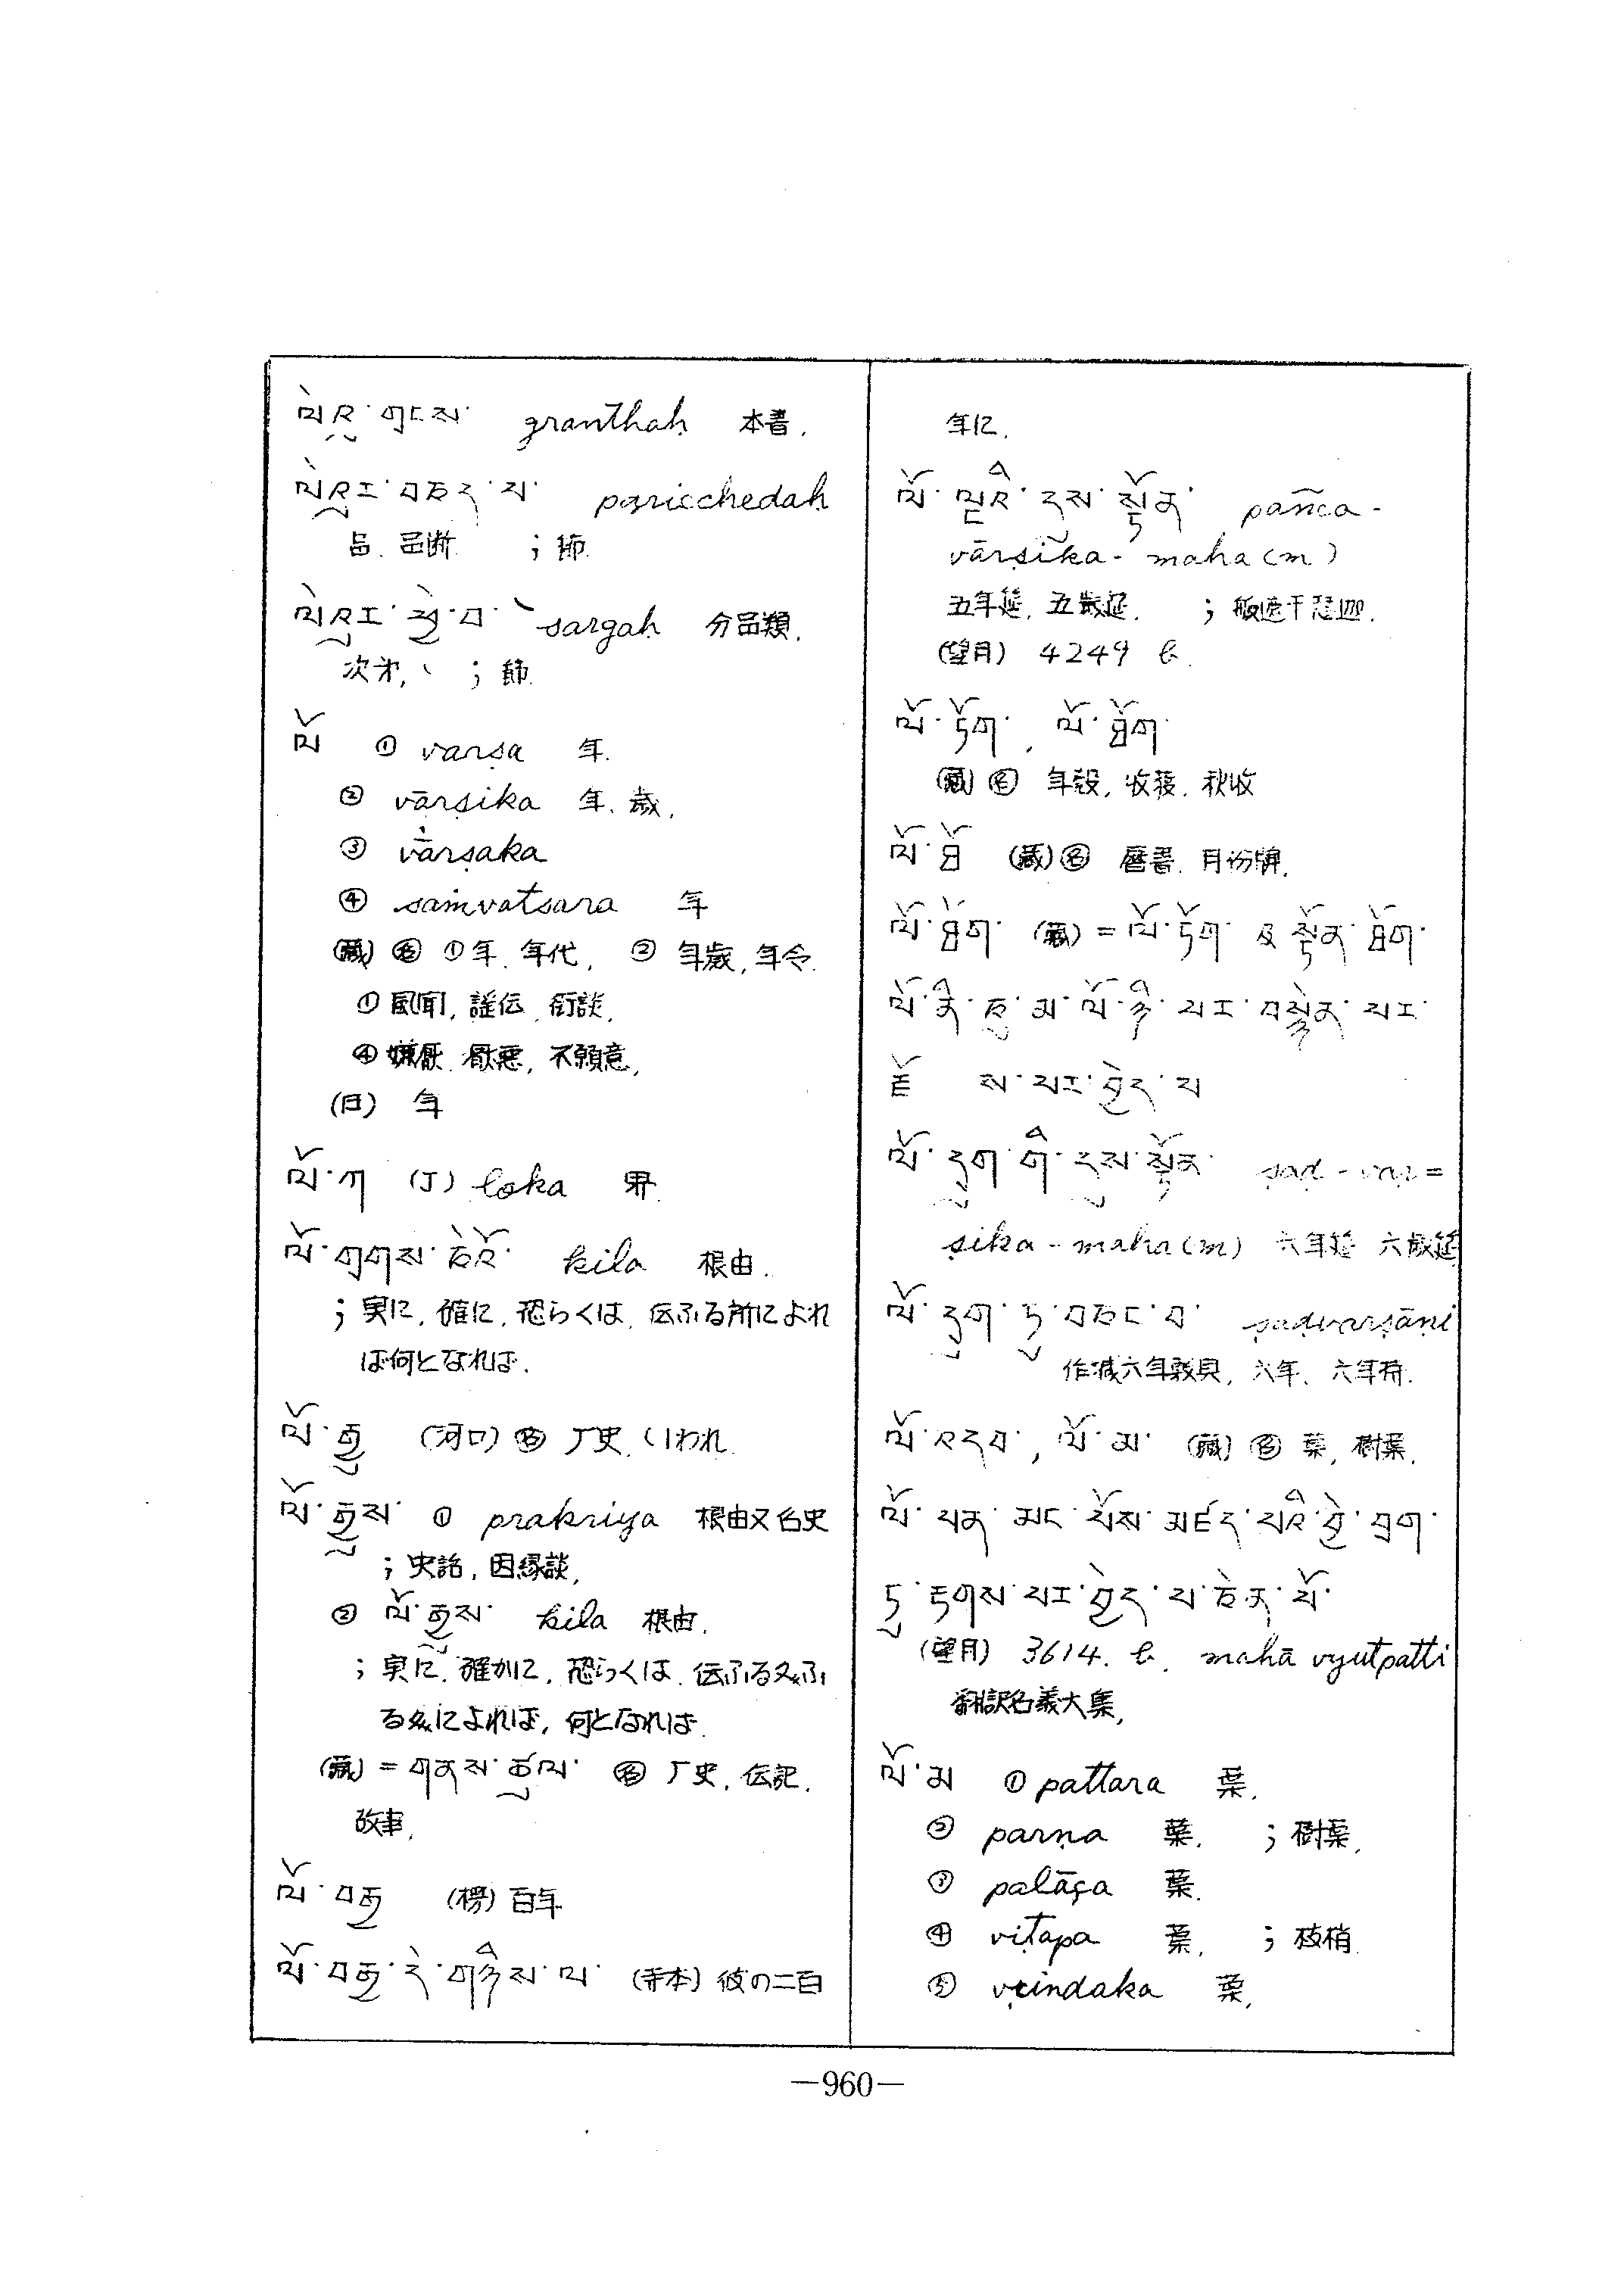 ལེའུ་གྲངས་ granthaḥ 本書.
ལེའུར་བཅད་པ་ paricchedaḥ
品. 品断 ; 節.
ལེའུར་ཕྱེ་བ་ sargaḥ 分品類.
次才, ; 節.
ལོ ① varṣa 年.
② vārṣika 年. 歳.
③ vārṣaka
④ saṁvatsara 年
(蔵) 名 ①年. 年代, ② 年歳, 年令.
① 風聞, 謡伝, 街談,
④ 嫌厭. 厭悪, 不願意,
(日) 年
ལོ་ཀ (J) loka 界.
ལོ་གྲགས་ཅེའོ་ kila 根由.
; 実に. 確に. 恐らくは. 伝ふる所によれ
ば何となれば.
ལོ་རྒྱུ (河口) 名 厂史. いわれ.
ལོ་རྒྱུས་ ① prakriya 根由又名史
; 史話, 因縁談,
② ལོ་རྒྱུས་ kila 根由.
; 実に. 確かに. 恐らくは. 伝ふる
によれば, 何となれば.
(蔵) = གནས་ཚུལ་ 名 厂史, 伝記.
故事,
ལོ་བརྒྱ (榜) 百年
ལོ་བརྒྱ་དེ་གཉིས་ལ་ (寺本) 彼の二百
年に.
ལོ་ལྔའི་དུས་སྟོན་ pañca-
vārṣika- maha (m)
五年筵, 五歳筵. ; 般遮于瑟迦.
(望月) 4249 b.
ལོ་ཏོག་, ལོ་ཐོག་
(蔵) 名 年穀, 收穫. 秋收
ལོ་ཐོ (蔵) 名 暦書. 月份牌.
ལོ་ཐོག་ (蔵) = ལོ་ཏོག་ 及 སྟོན་ཐོག་
ལོ་ནི་རྒྱ་མ་ལོ་ཉི་པར་བསྙེན་པར་
ས་པར་བྱེད་པ
ལོ་དྲུག་གི་དུས་སྟོན་ ṣaḍ-var=
ṣika-maha (m) 六年筵 六歳筵
ལོ་དྲུག་ཏུ་བཅང་བ་ ṣaḍvarṣāṇi
作滅六年敎具, 六年、六年荷.
ལོ་འདབ་, ལོ་མ་ (蔵) 名 葉, 樹葉.
ལོ་པན་མང་པོས་མཛད་པའི་བྱེ་བྲག་
ཏུ་རྟོགས་པར་བྱེད་པ་ཆེན་པོ་
(望月) 3614. b. mahā vyutpatti
翻訳名義大集,
ལོ་མ ① pattara 葉.
② parṇa 葉. ; 樹葉.
③ palāça 葉.
④ viṭapa 葉. ; 枝梢.
⑤ vṛindaka 葉.
—960—